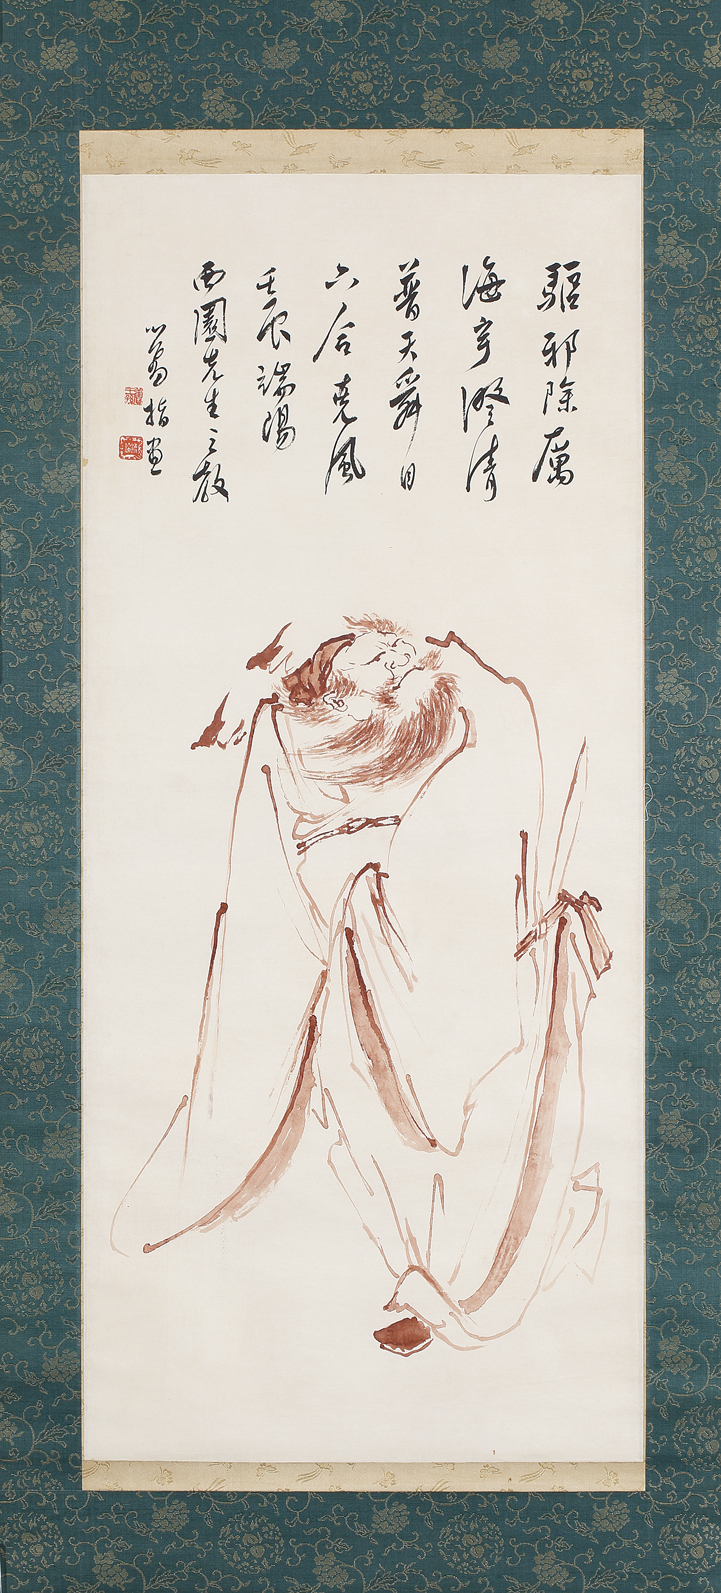 驅邪除厲
海宇澄清
普天舜日
六合堯風
壬辰端陽
西園先生之教
心畬指畫